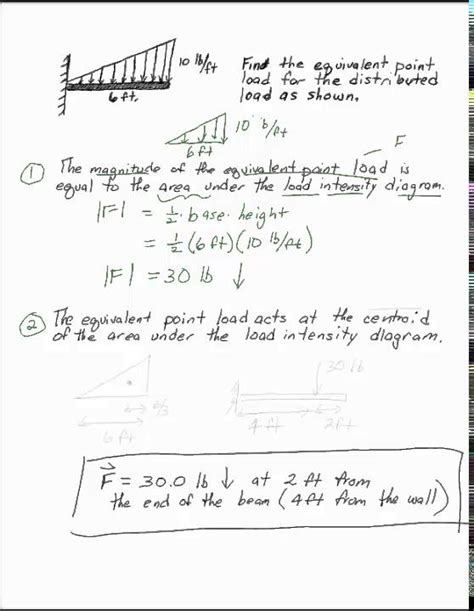 10 lb/ft
6 ft.
Find the equivalent point
load for the distributed
load as shown.
10 lb/ft
6 ft
F
① The magnitude of the equivalent point load is
equal to the area under the load intensity diagram.
|F| = 1/2 · base · height
= 1/2 (6 ft)(10 lb/ft)
|F| = 30 lb ↓
② The equivalent point load acts at the centroid
of the area under the load intensity diagram.
b/3
6 ft
30 lb
4 ft
2 ft
F⃗ = 30.0 lb ↓ at 2 ft from
the end of the beam (4 ft from the wall)